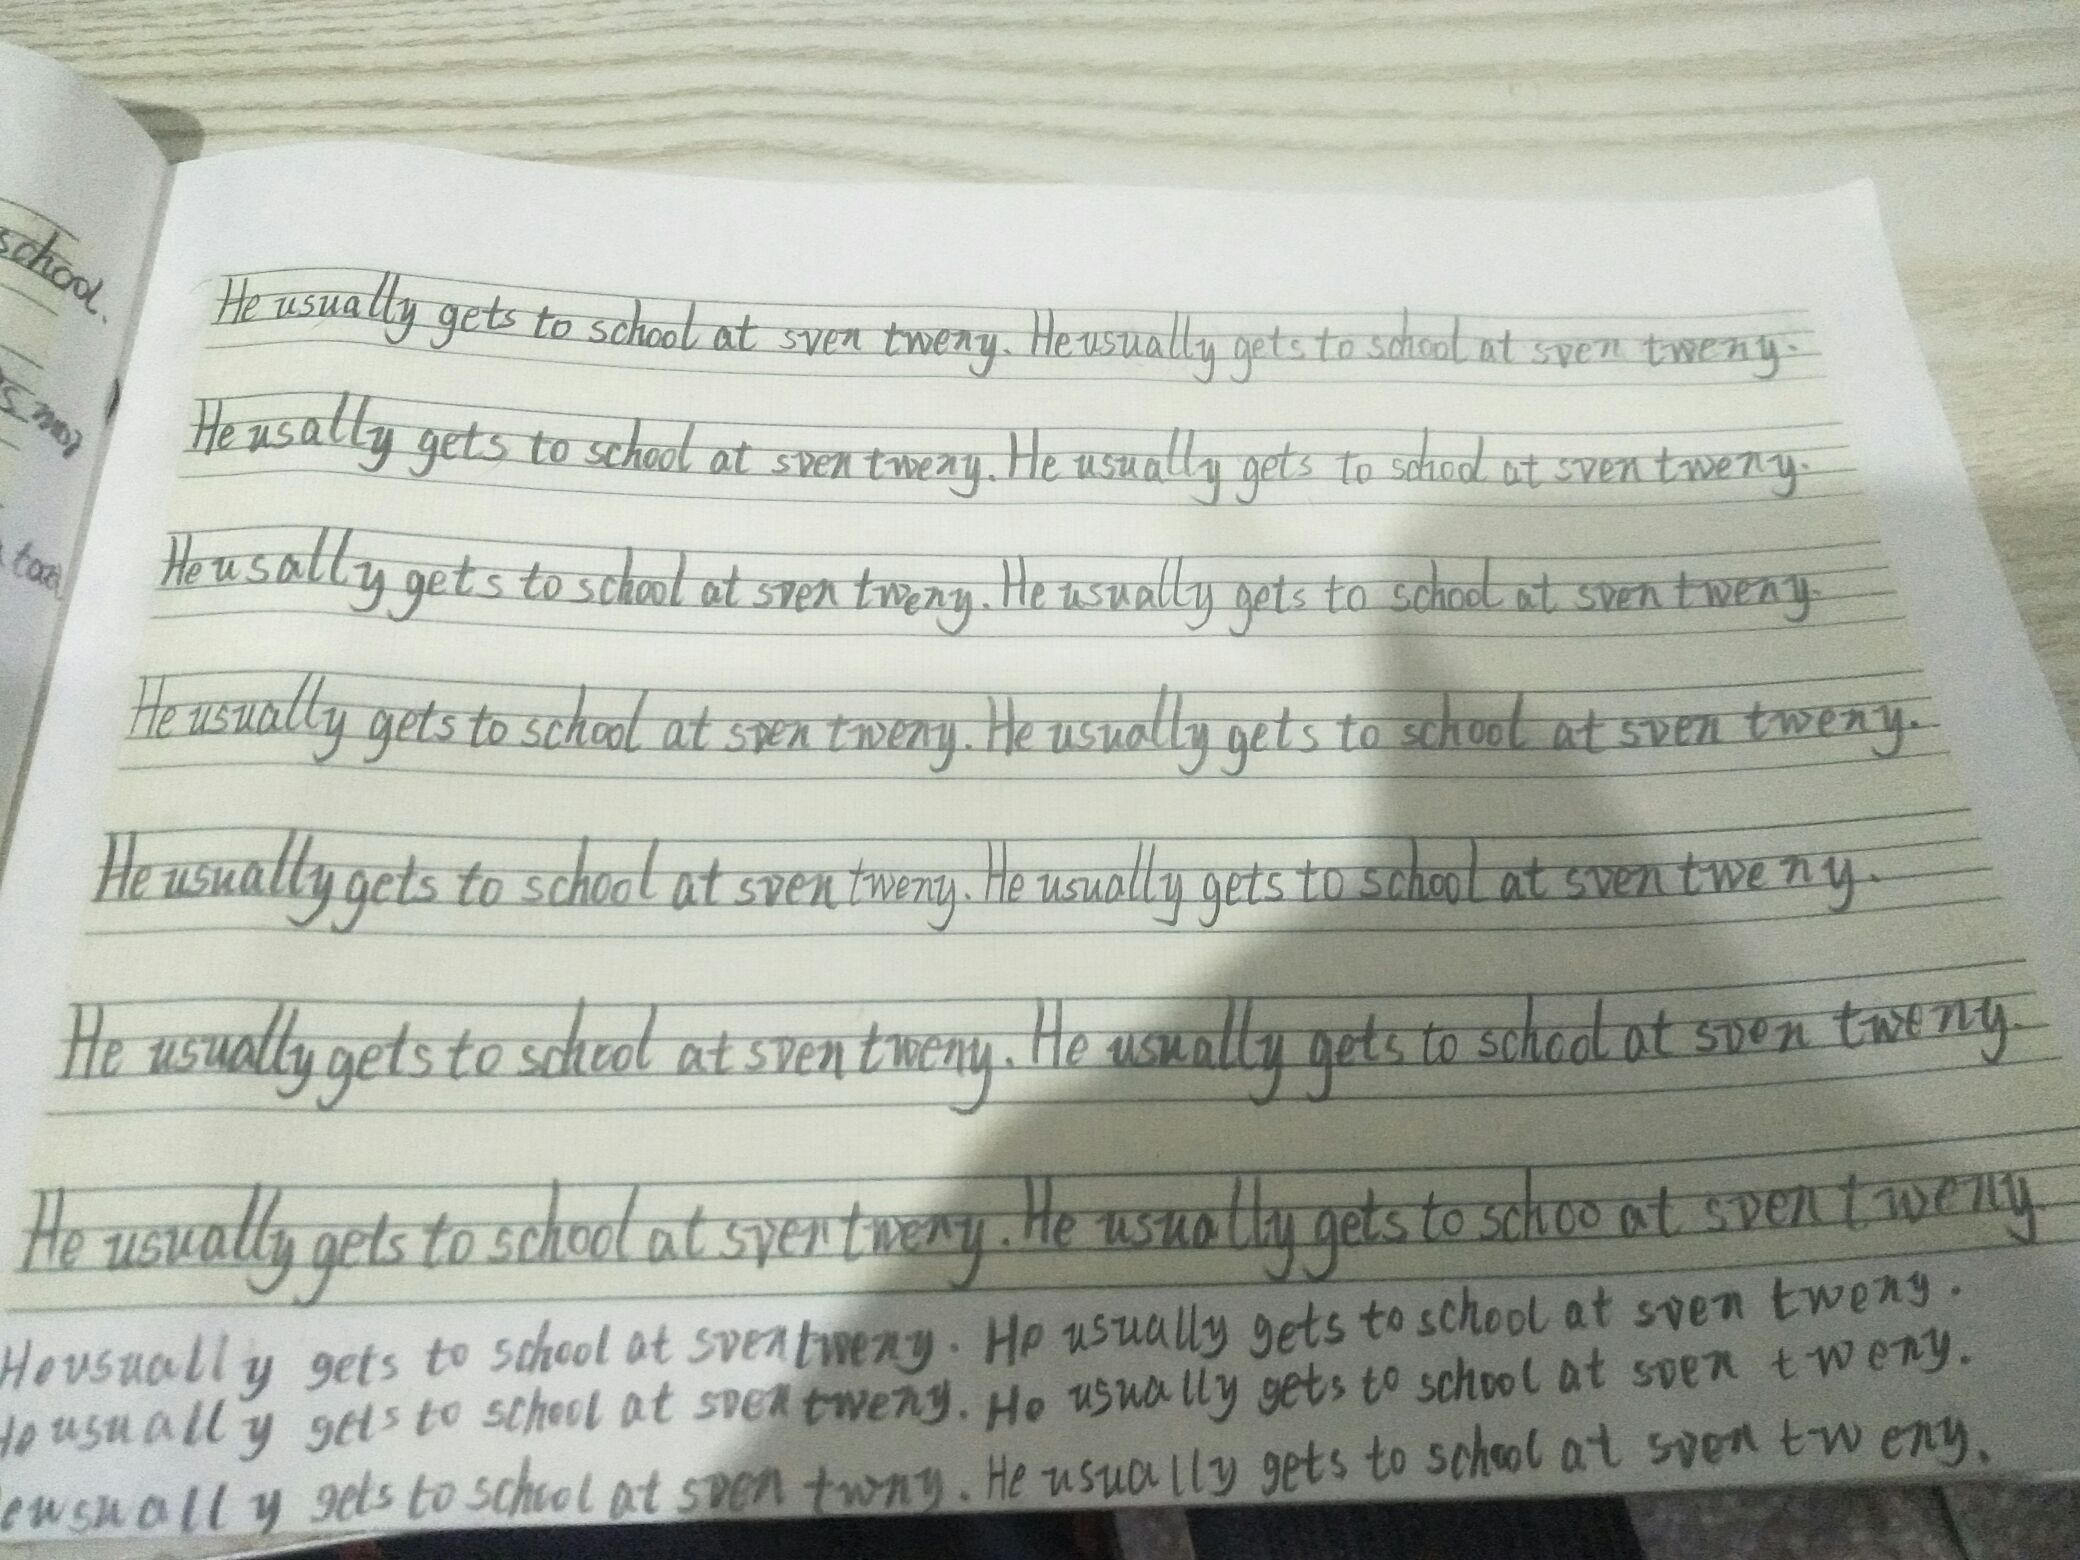 school.
He usually gets to school at sven tweny. He usually gets to school at sven tweny.
He usally gets to school at sven tweny. He usually gets to school at sven tweny.
He usally gets to school at sven tweny. He usually gets to school at sven tweny.
He usually gets to school at sven tweny. He usually gets to school at sven tweny.
He usually gets to school at sven tweny. He usually gets to school at sven tweny.
He usually gets to school at sven tweny. He usually gets to school at sven tweny.
He usually gets to school at sven tweny. He usually gets to schoo at sven tweny
He usually gets to school at sven tweny. He usually gets to school at sven tweny.
He usually gets to school at sven tweny. He usually gets to school at sven tweny.
usually gets to school at sven twny. He usually gets to school at sven tweny.